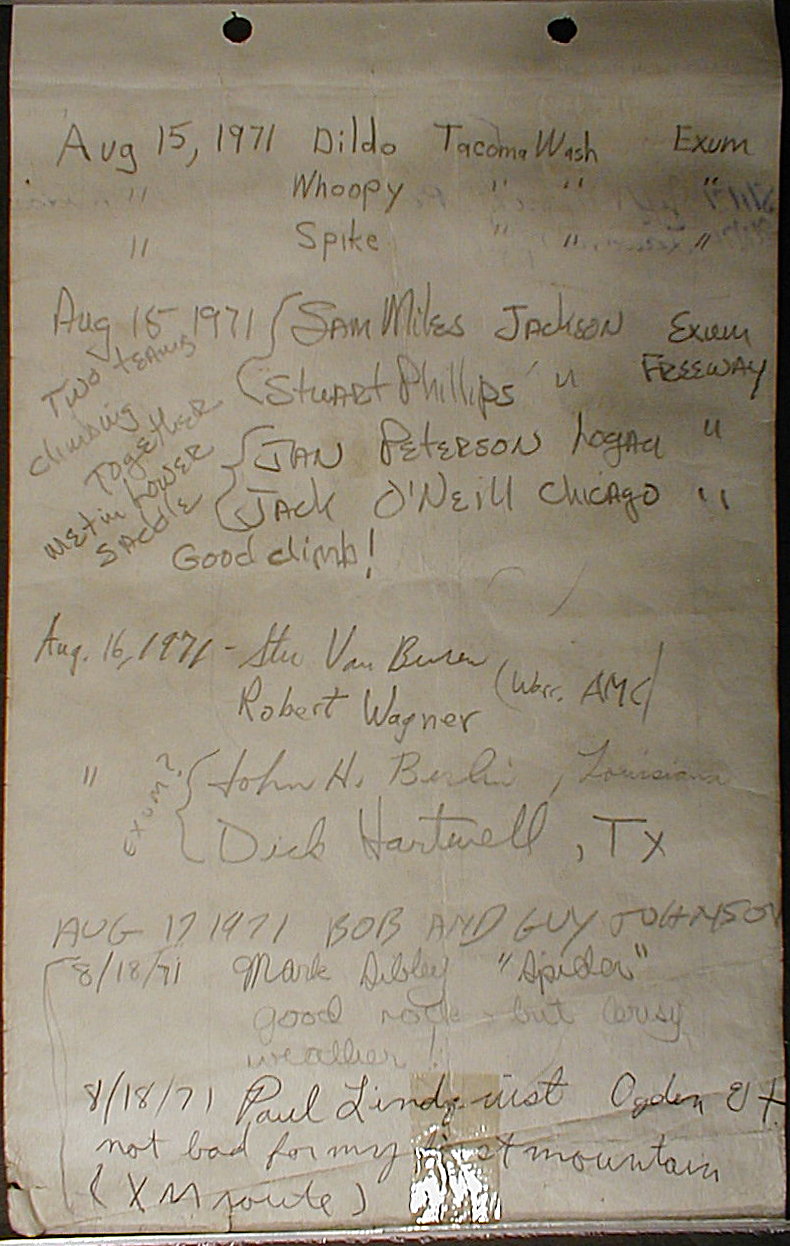 Aug 15, 1971 Dildo Tacoma Wash Exum
" Whoopy " " "
" Spike " " "
Aug 15 1971 { Sam Miles Jackson Exum
Two teams ( Stuart Phillips " Freeway
climbing
Together { Jan Peterson Logan "
met in Lower
Saddle ( Jack O'Neill Chicago "
Good climb!
Aug. 16, 1971 - Stu Van Buren
Robert Wagner AMC)
" Exum? { John H. Berlin, Louisiana
Dick Hartwell, Tx
AUG 17 1971 BOB AND GUY JOHNSON
8/18/71 Mark Sibley "Spider"
good rock - but lousy
weather!
8/18/71 Paul Lindquist Ogden Ut
not bad for my first mountain
(XM route)